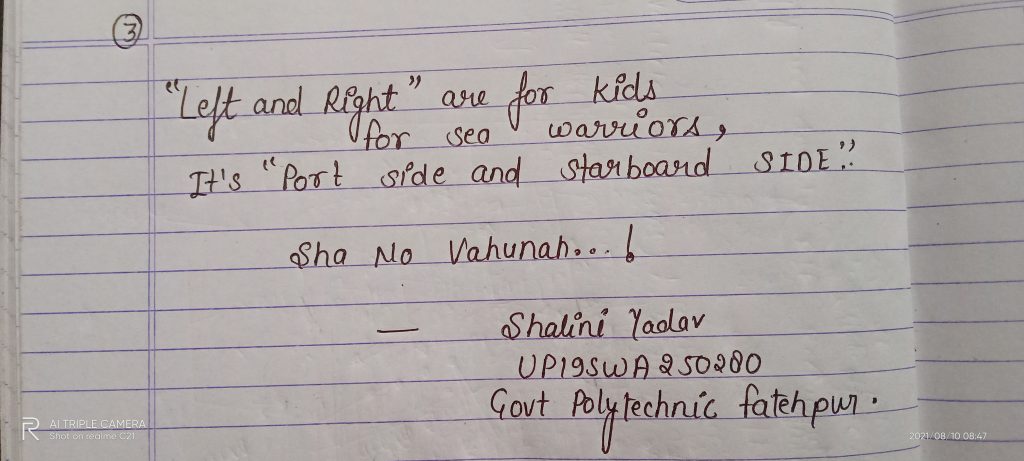 3
"Left and Right" are for kids
for sea warriors,
It's "Port side and starboard SIDE".
Sha No Vahunah...!
— Shalini Yadav
UP19SWA250280
Govt Polytechnic fatehpur.
AI TRIPLE CAMERA
Shot on realme C21
2021/08/10 08:47